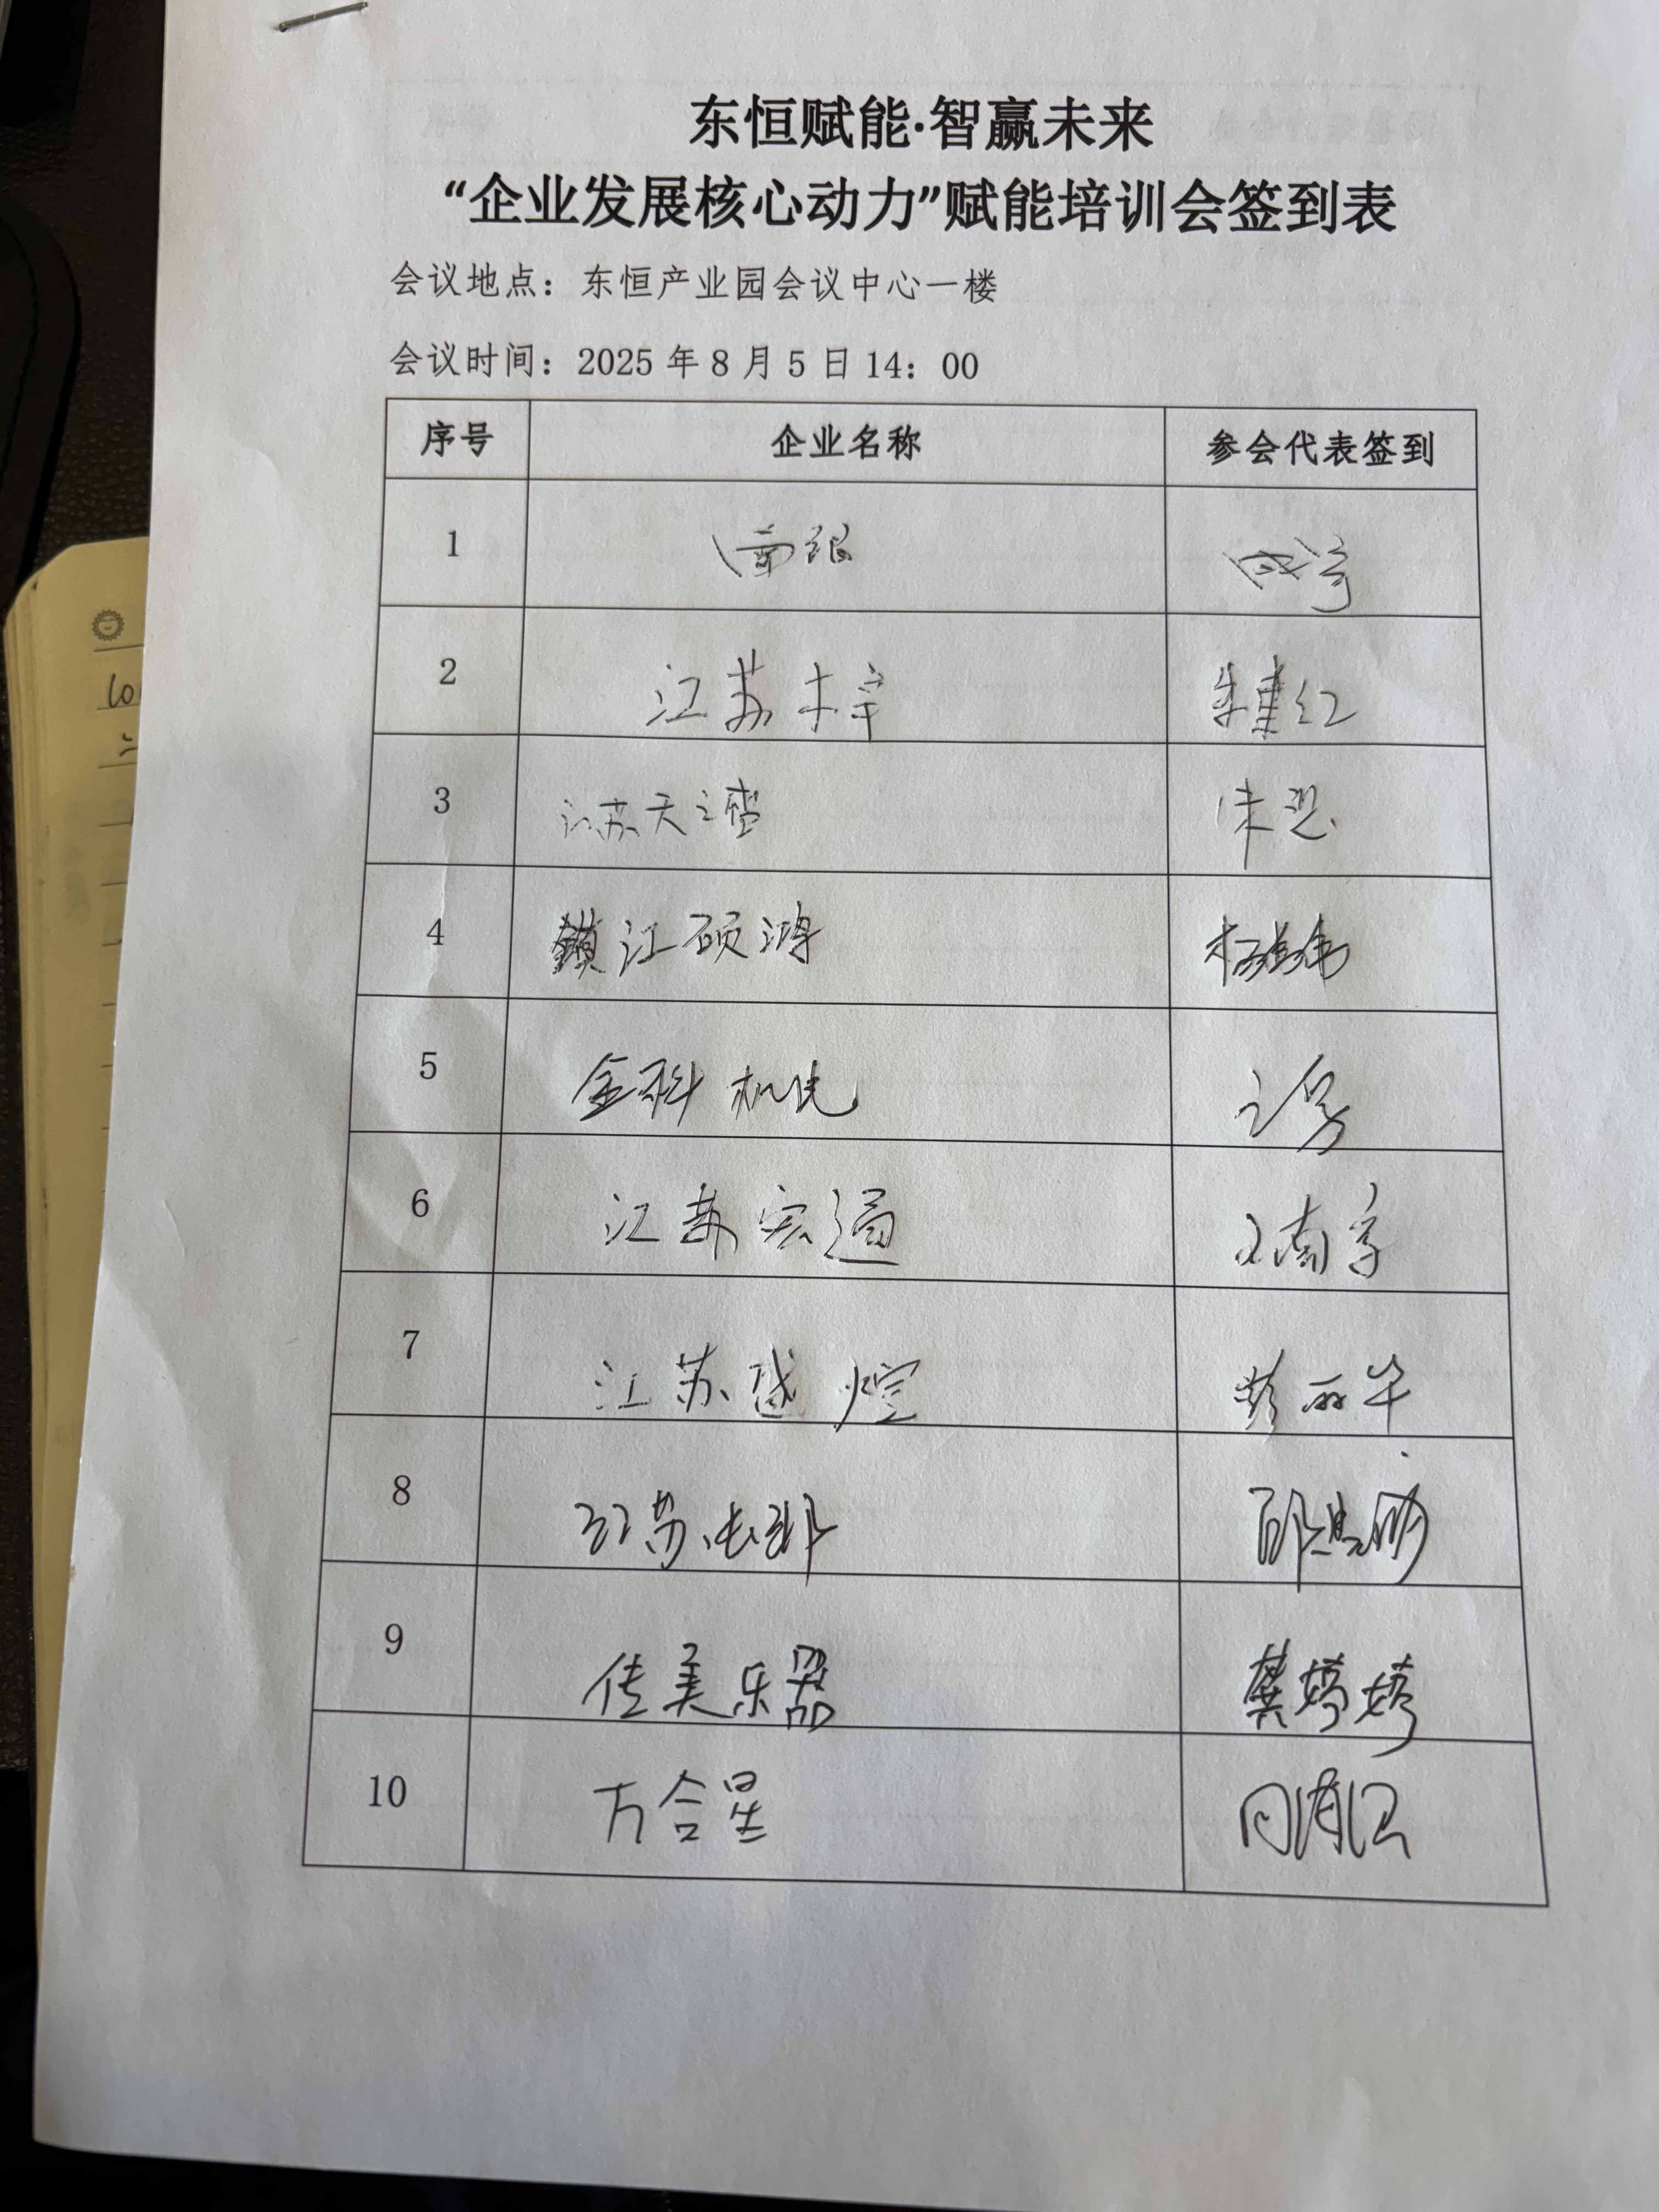 东恒赋能·智赢未来
“企业发展核心动力”赋能培训会签到表
会议地点：东恒产业园会议中心一楼
会议时间：2025 年 8 月 5 日 14：00
序号 企业名称 参会代表签到
1
2 江苏 朱建红
3 江苏天 朱
4 鎮江硕鸿 杨
5 金科机电
6 江苏宏通 南
7 江苏盛煊 彭丽华
8 江苏 邵
9 传美乐器 龚婷婷
10 万合星